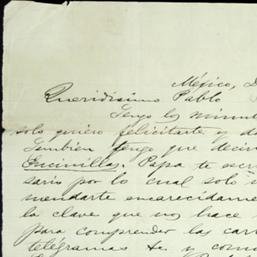 Méjico, D
Queridísimo Pablo
Tengo los minut
solo quiero felicitarte y d
Tambien tengo que decir
Encinillas. Papa te escri
sario por lo cual solo
mendarte encarecidame
la clave que nos hace
para comprender las car
telegramas &. y como